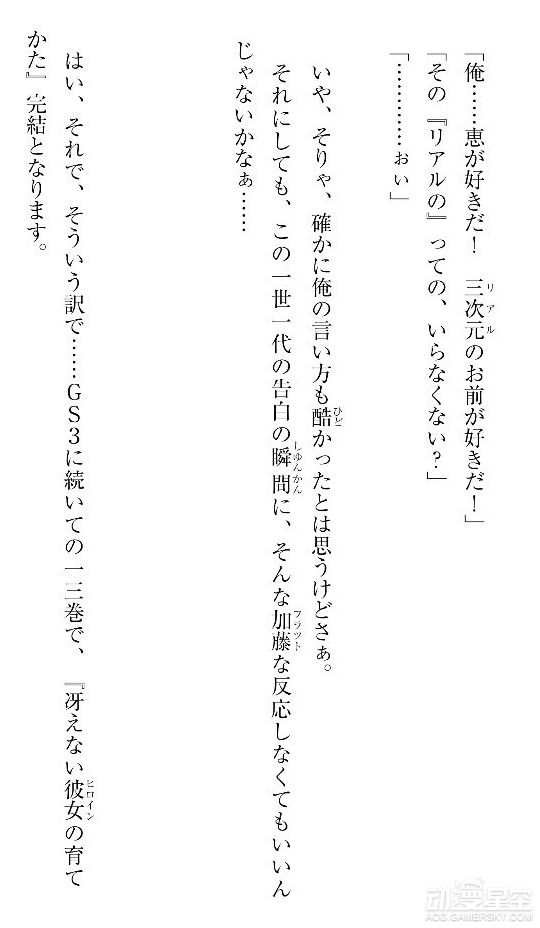 「俺……恵が好きだ！　三次元のお前が好きだ！」
リアル
「その『リアルの』っての、いらなくない？」
「…………ぉい」
いや、そりゃ、確かに俺の言い方も酷かったとは思うけどさぁ。
ひど
それにしても、この一世一代の告白の瞬間に、そんな加藤な反応しなくてもいいん
しゅんかん
フラット
じゃないかなぁ……
はい、それで、そういう訳で……ＧＳ３に続いての一三巻で、『冴えない彼女の育て
ヒロイン
かた』完結となります。
动漫星空
ACG.GAMERSKY.COM